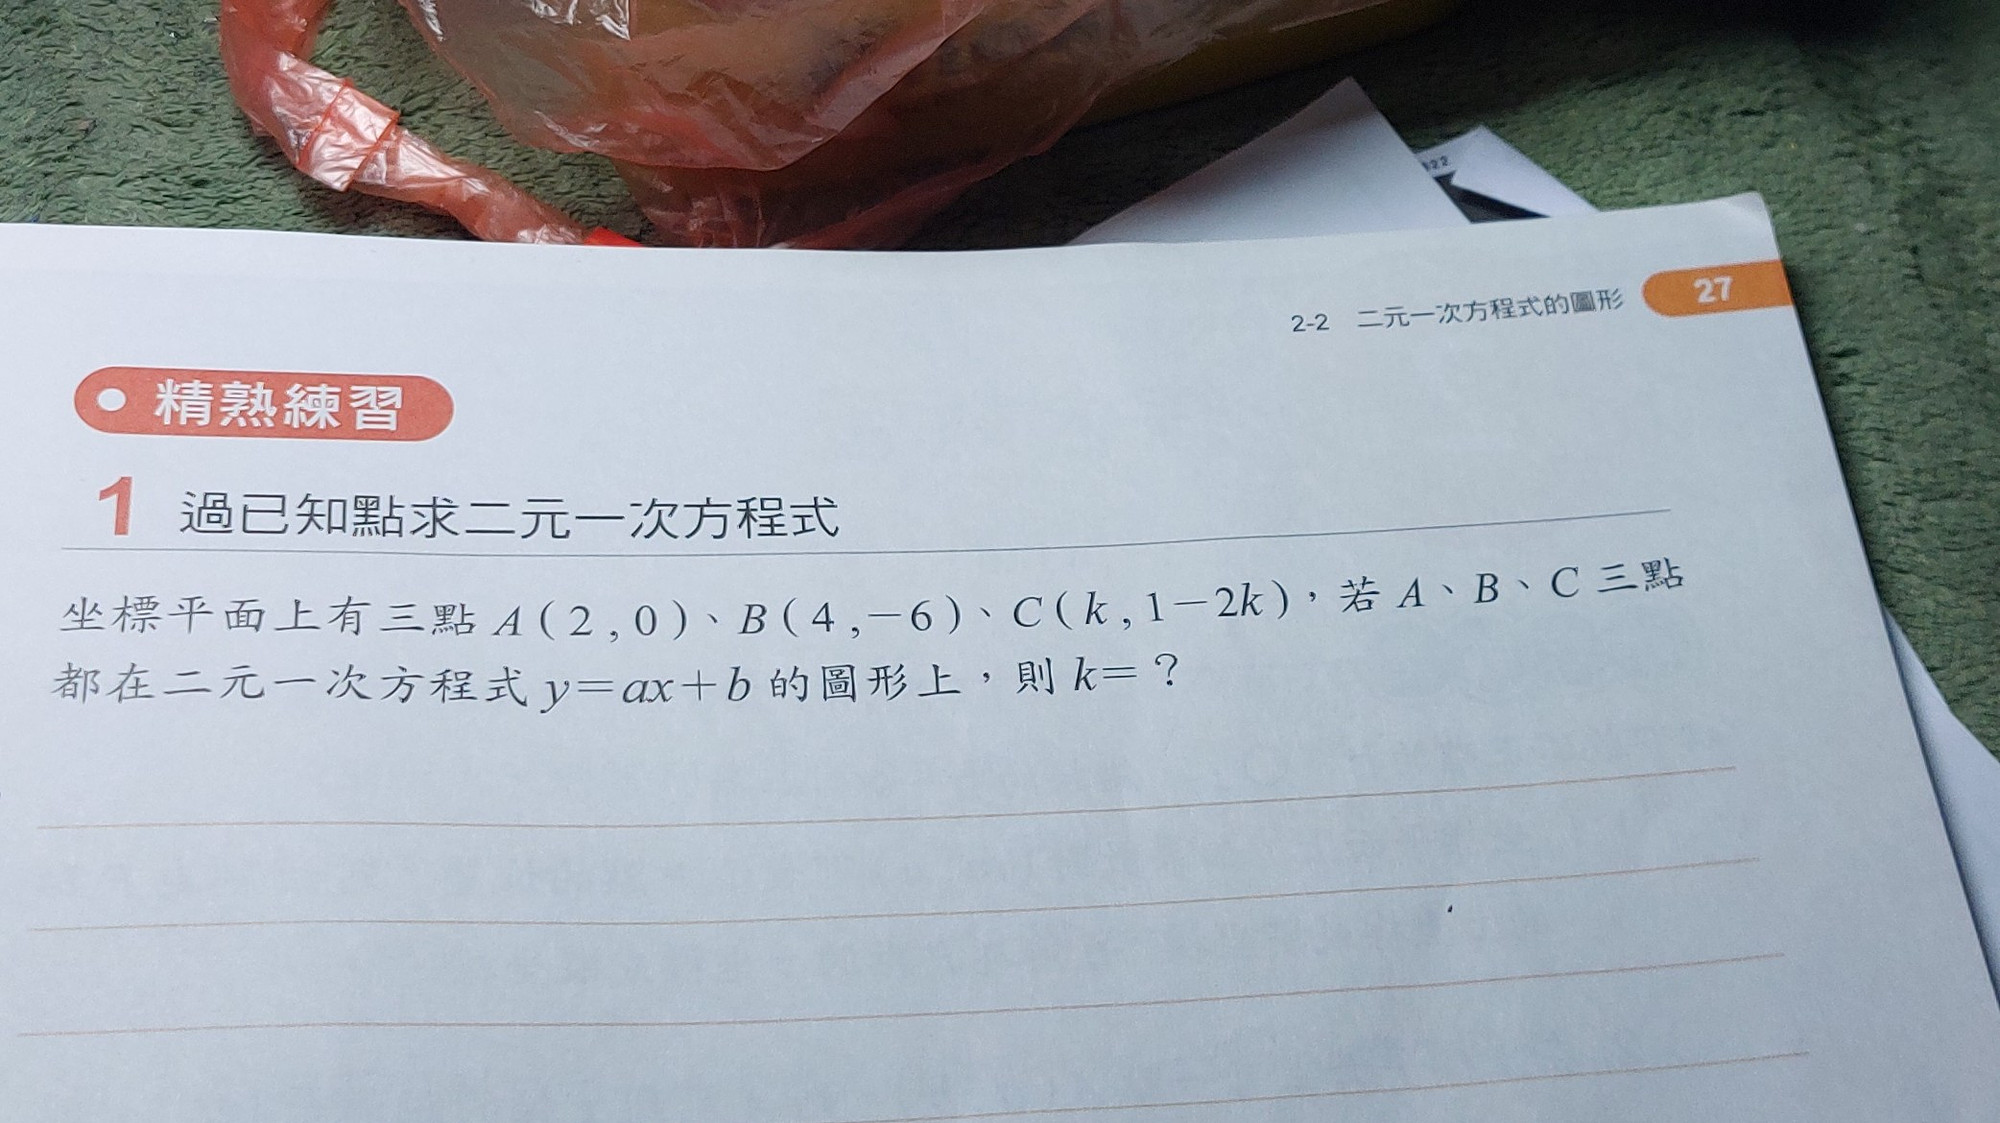 022
2-2 二元一次方程式的圖形 27
精熟練習
1 過已知點求二元一次方程式
坐標平面上有三點 A(2,0)、B(4,-6)、C(k,1-2k),若 A、B、C 三點
都在二元一次方程式 y=ax+b 的圖形上,則 k=?